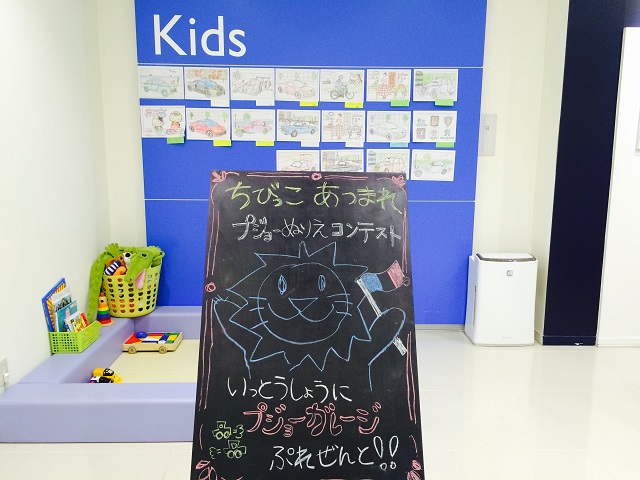 Kids
ちびっこ あつまれ
プジョーぬりえコンテスト
いっとうしょうに
プジョーガレージ
ぷれぜんと!!